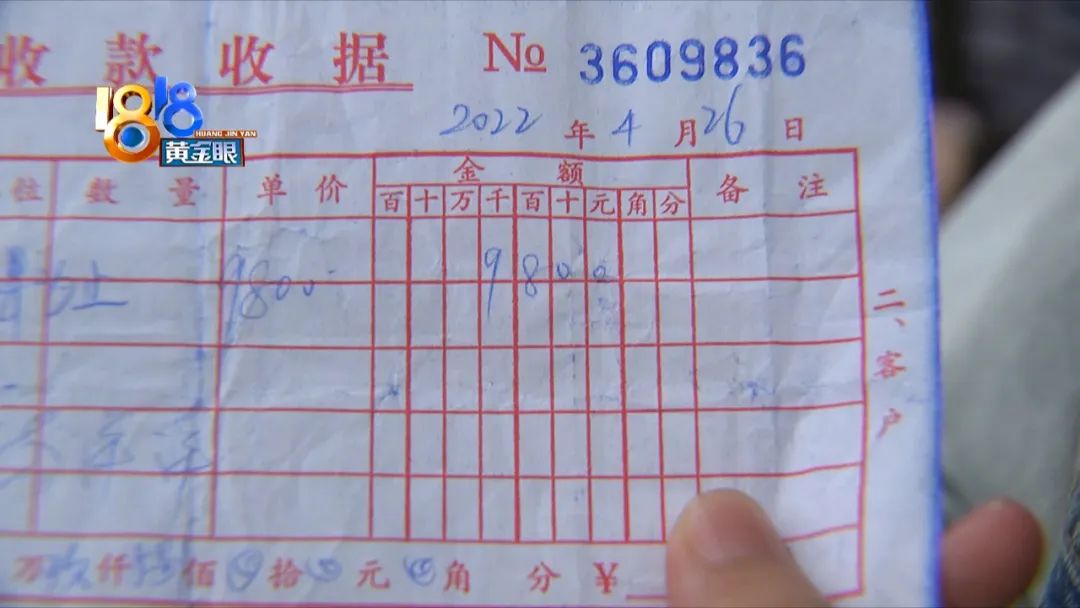 收款收据 № 3609836
1818
HUANG JIN YAN
黄金眼
2022年4月26日
位 数量 单价 金额 备注
百十万千百十元角分
9800 9800
二、客户
万玖仟捌佰 拾 元 角 分 ¥